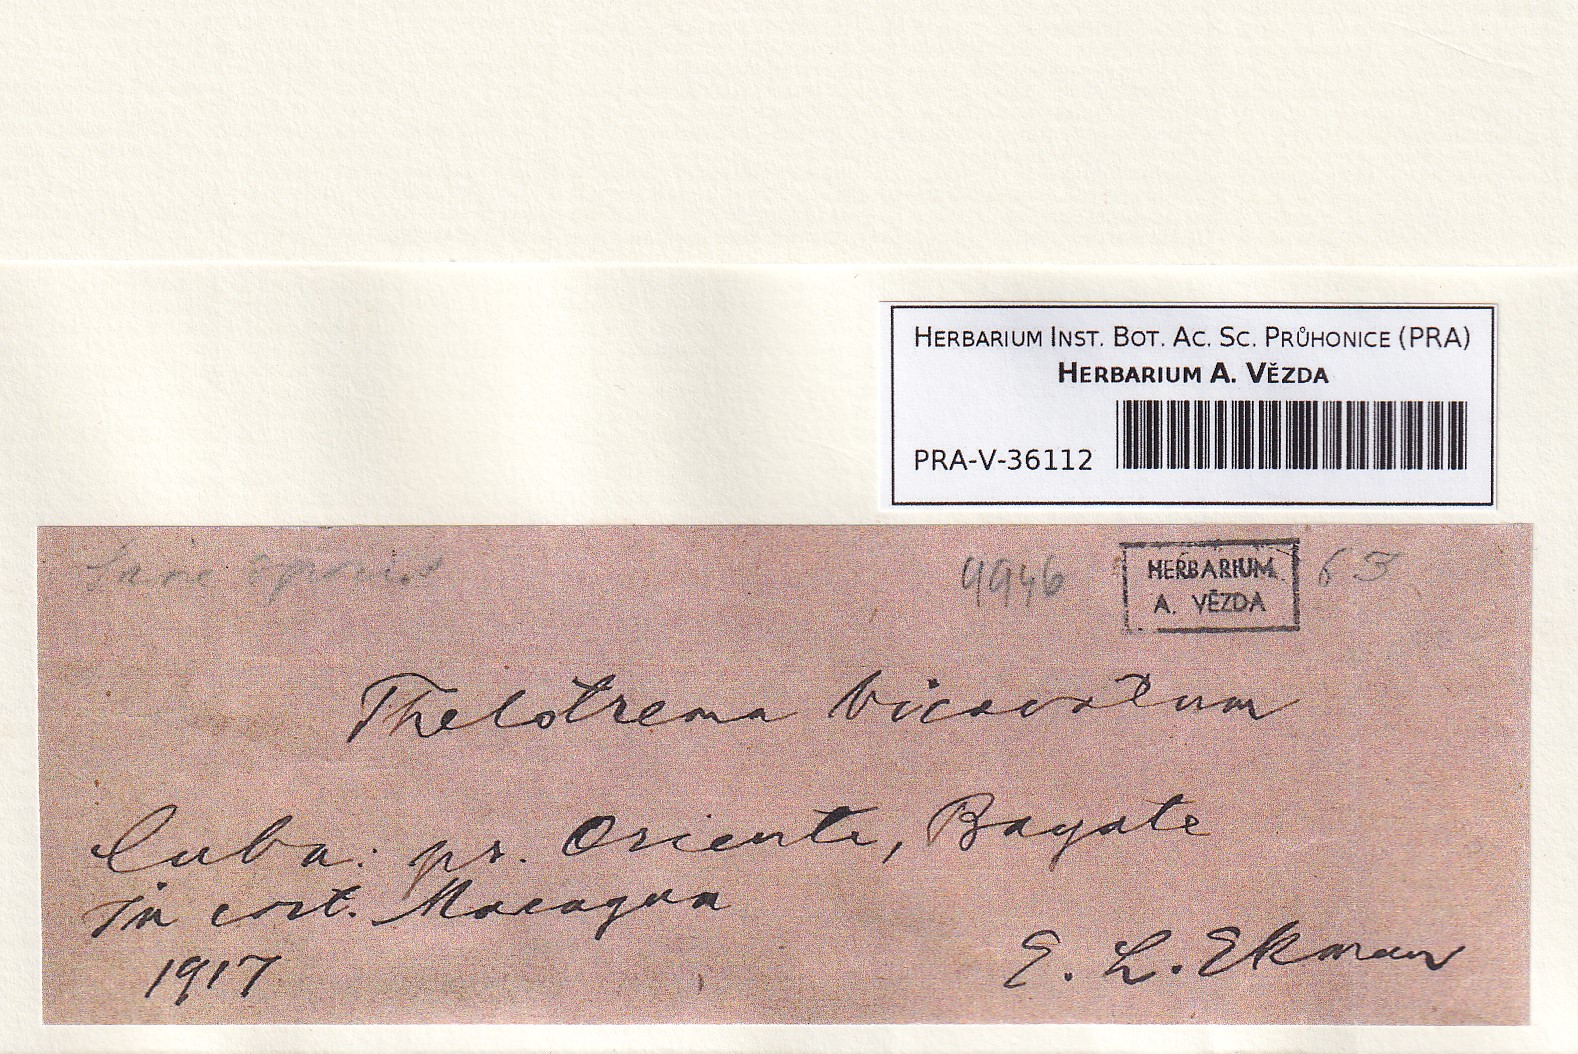 HERBARIUM INST. BOT. AC. SC. PRŮHONICE (PRA)
HERBARIUM A. VĚZDA
PRA-V-36112
9946
HERBARIUM
A. VĚZDA
63
Thelotrema bicavatum
Cuba: pr. Oriente, Bayate
in cort. Macagua
1917
E. L. Ekman